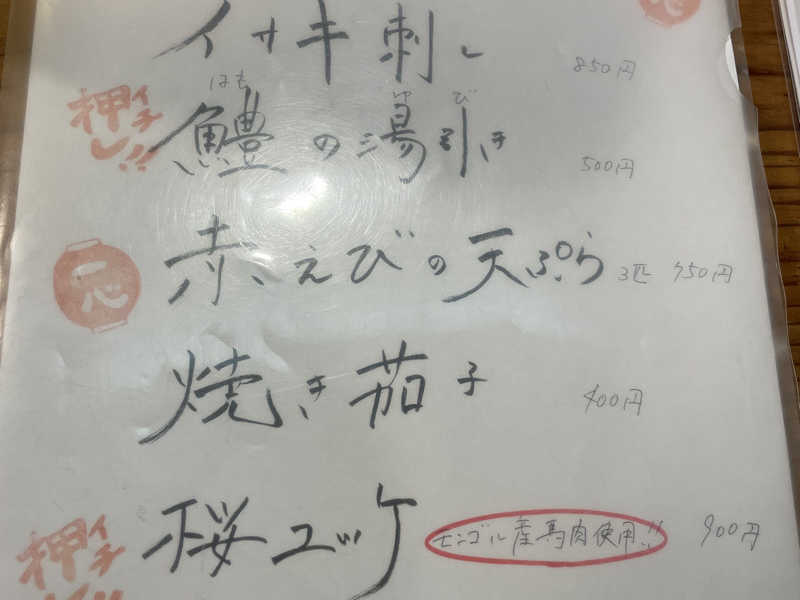 イサキ刺し 850円
押イチし!!
はも ゆ び
鱧の湯引き 500円
一心
赤えびの天ぷら 3匹 750円
焼き茄子 400円
押イチ
桜ユッケ モンゴル産馬肉使用!! 900円